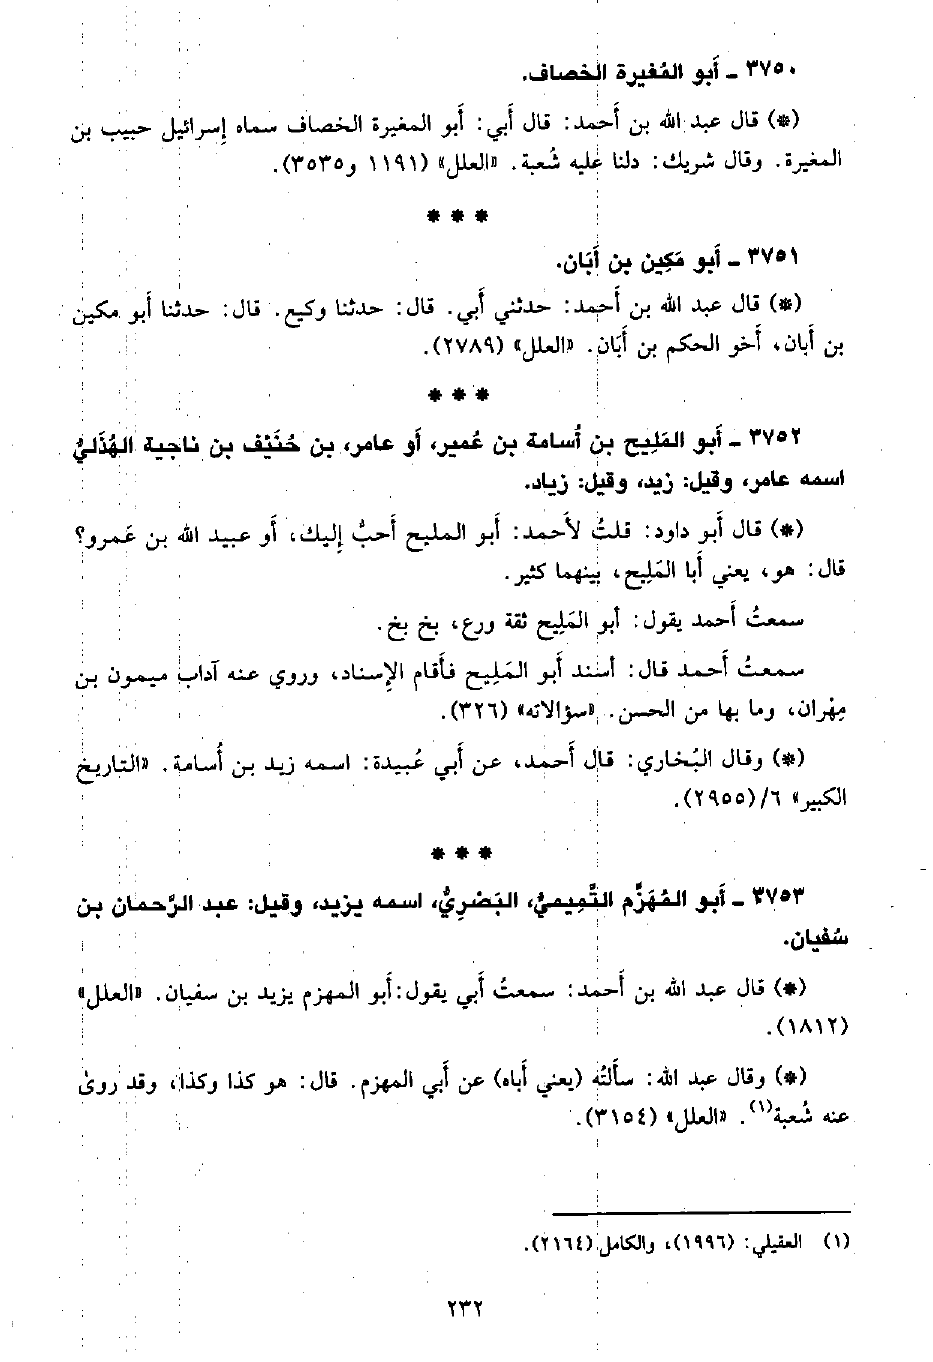 ٣٧٥٠ ـ أبو المُغيرة الخصاف.
(*) قال عبد الله بن أحمد: قال أبي: أبو المغيرة الخصاف سماه إسرائيل حبيب بن
المغيرة. وقال شريك: دلنا عليه شُعبة. «العلل» (١١٩١ و٣٥٣٥).
* * *
٣٧٥١ ـ أبو مَكِين بن أبَان.
(*) قال عبد الله بن أحمد: حدثني أبي. قال: حدثنا وكيع. قال: حدثنا أبو مكين
بن أبان، أخو الحكم بن أبَان. «العلل» (٢٧٨٩).
* * *
٣٧٥٢ ـ أبو المَلِيح بن أُسامة بن عُمير، أو عامر، بن حُنَيْف بن ناجية الهُذَليُّ
اسمه عامر، وقيل: زيد، وقيل: زياد.
(*) قال أبو داود: قلتُ لأحمد: أبو المليح أحبُّ إليك، أو عبيد الله بن عَمرو؟
قال: هو، يعني أبا المَلِيح، بينهما كثير.
سمعتُ أحمد يقول: أبو المَلِيح ثقة ورع، بخ بخ.
سمعتُ أحمد قال: أسند أبو المَلِيح فأقام الإسناد، وروي عنه آداب ميمون بن
مِهْران، وما بها من الحسن. «سؤالاته» (٣٢٦).
(*) وقال البُخاري: قال أحمد، عن أبي عُبيدة: اسمه زيد بن أُسامة. «التاريخ
الكبير» ٦/(٢٩٥٥).
* * *
٣٧٥٣ ـ أبو المُهَزِّم التَّمِيميُّ، البَصْرِيُّ، اسمه يزيد، وقيل: عبد الرَّحمان بن
سُفْيان.
(*) قال عبد الله بن أحمد: سمعتُ أبي يقول: أبو المهزم يزيد بن سفيان. «العلل»
(١٨١٢).
(*) وقال عبد الله: سألتُه (يعني أباه) عن أبي المهزم. قال: هو كذا وكذا، وقد روىٰ
عنه شُعبة(١). «العلل» (٣١٥٤).
(١) العقيلي: (١٩٩٦)، والكامل (٢١٦٤).
٢٣٢